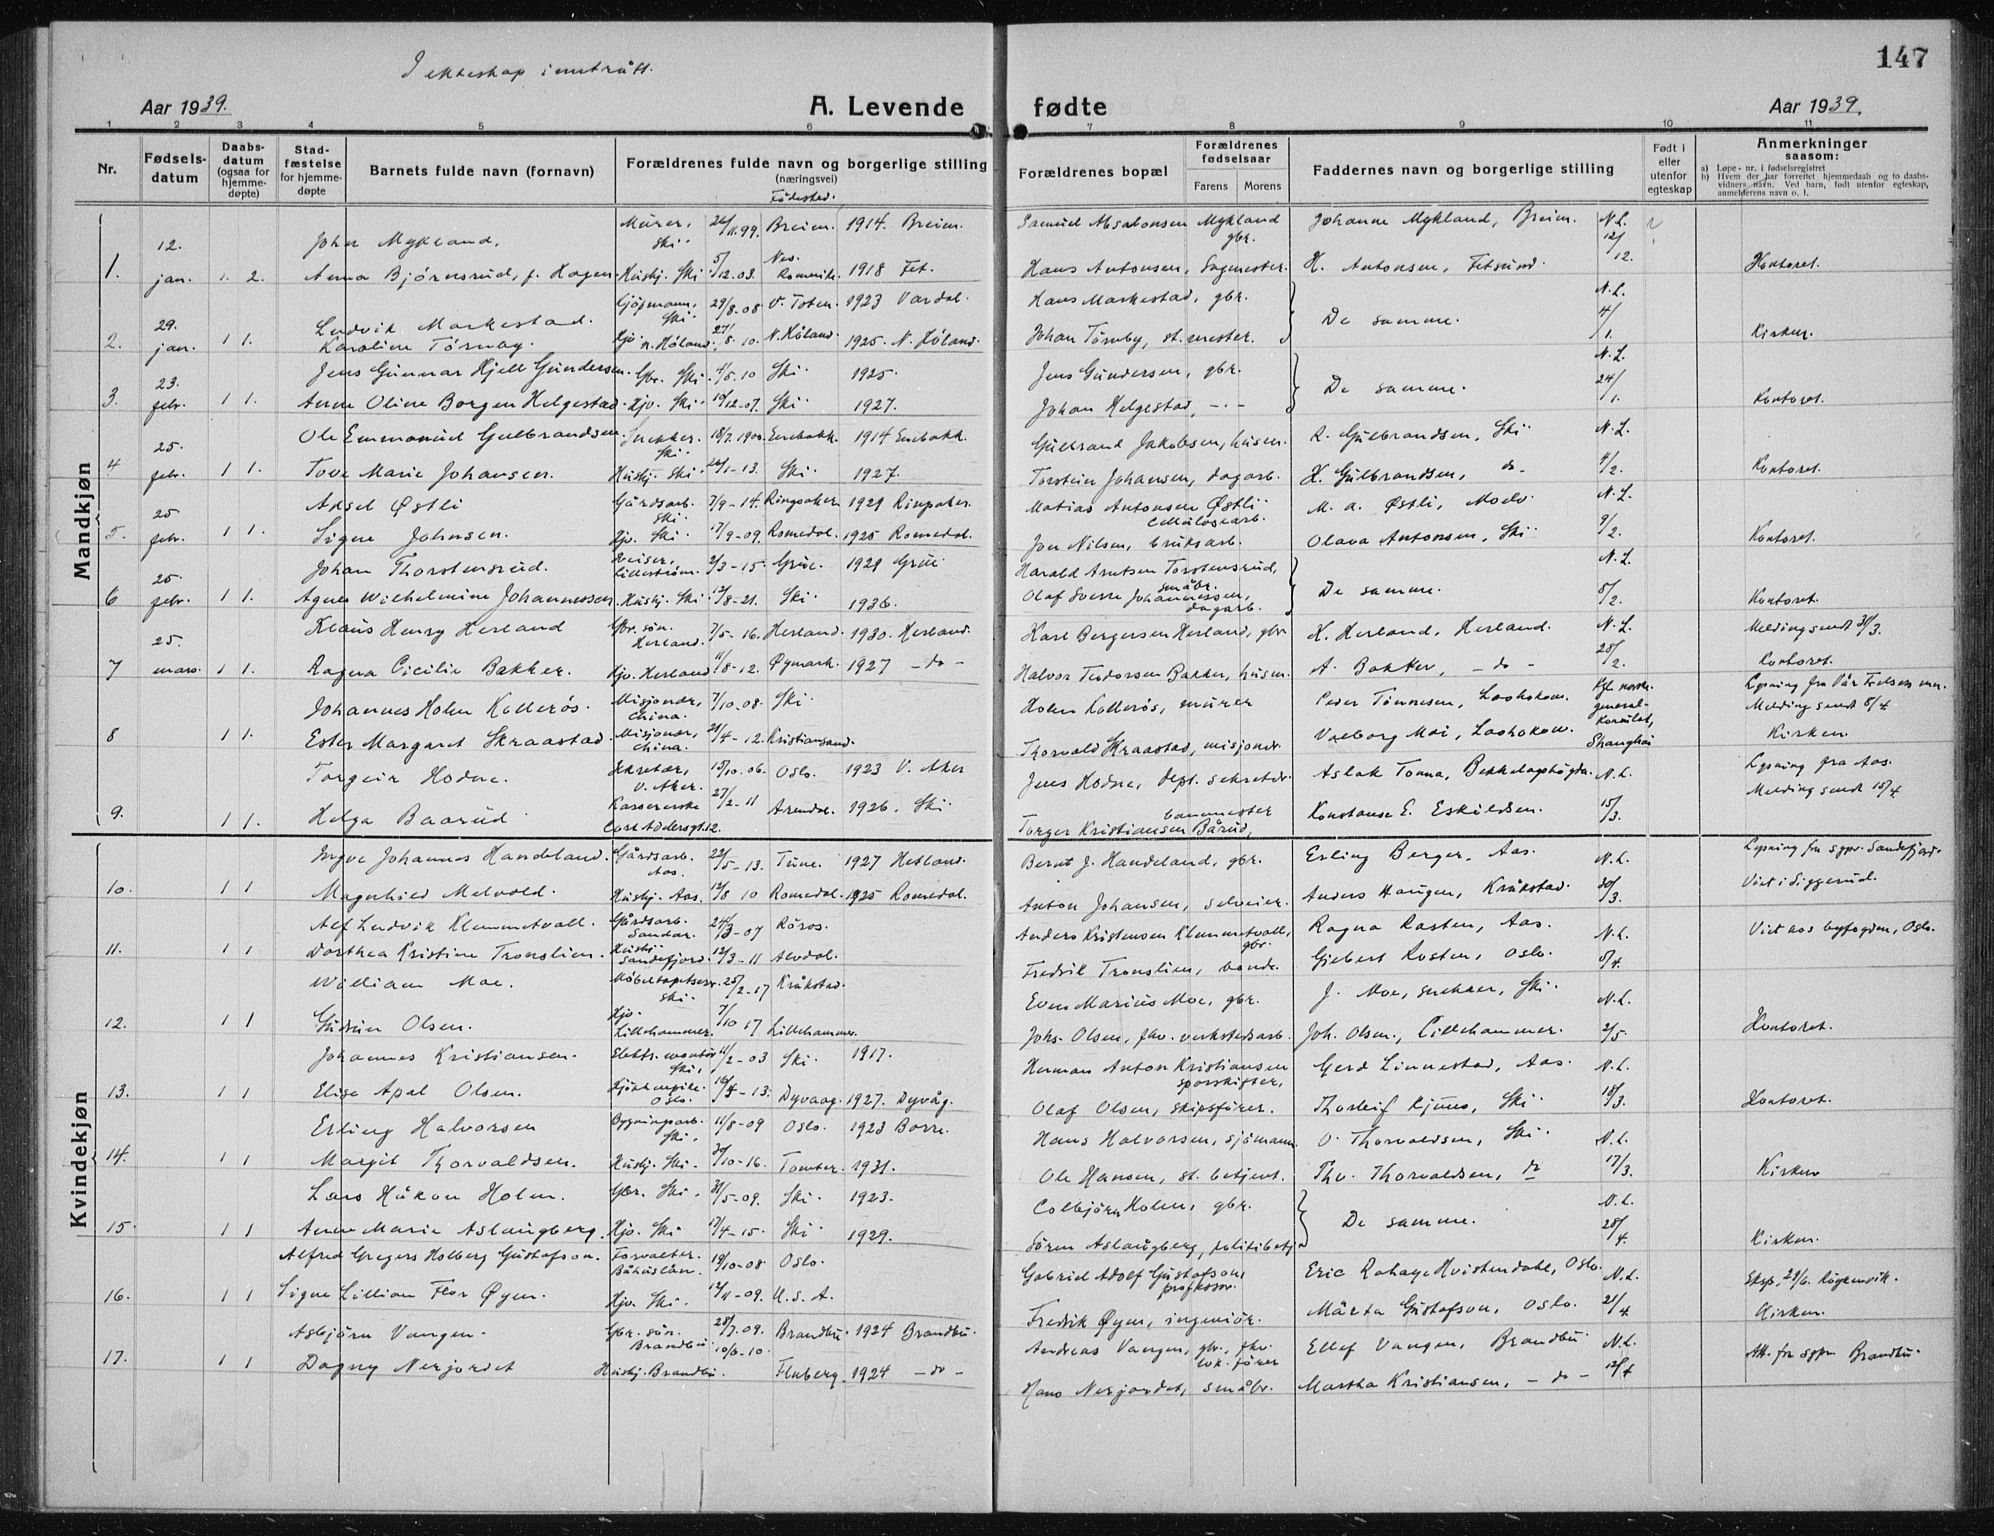 147
I ekteskap inntrått.
Aar 1939. A. Levende fødte Aar 1939.
1 2 3 4 5 6 7 8 9 10 11
Nr. Fødselsdatum Daabsdatum (ogsaa for hjemmedøpte) Stadfæstelse for hjemmedøpte Barnets fulde navn (fornavn) Forældrenes fulde navn og borgerlige stilling (næringsvei) Forældrenes bopæl Forældrenes fødselsaar Farens Morens Faddernes navn og borgerlige stilling Født i eller utenfor egteskap Anmerkninger saasom: a) Løpe-nr. i fødselsregistret b) Hvem der har forrettet hjemmedaab og to daabsvidners navn. Ved barn, født utenfor egteskap, anmelderens navn o. l.
Fødested.
Mandkjøn
12. Johan Mykland. Murer, Ski 1914. Breim. Samuel Absalonsen Mykland gbr. Johanne Mykland, Breim. N.L.
1. jan. 1. 2. Anna Bjørnsrud, f. Hagen Husbj. Ski 5/12.03. Nes. Romerike 1918 Fet. Hans Antonsen, Sagmester. H. Antonsen, Fetsund. 12/12. Kontoret.
29. Ludvik Markestad. Ski 29/8-08 V. Toten. 1923 Vardal. Hans Markestad, gbr. De samme. N.L.
2. jan. 1 1. Karoline Tørnby. Hjv. N. Høland. 27/8-10. N. Høland 1925. N. Høland. Johan Tørnby, st. mester. 4/1. Kirken.
23. Jens Gunnar Kjell Gundersen. Gbr. Ski. 4/5-10 Ski. 1925. Jens Gundersen, gbr. De samme. N.L.
3. febr. 1 1. Anne Oline Borgen Helgestad. Hjv. Ski. 10/12-07. Ski. 1927. Johan Helgestad, -.- 24/1. Kontoret.
25. Ole Emmanuel Gulbrandsen. Snekker. Ski. 18/7.1900. Enebakk. 1914 Enebakk. Gulbrand Jakobsen, husm. R. Gulbrandsen, Ski N.L.
4 febr. 1 1. Tove Marie Johansen. Husbj. Ski Ski. 1927. Torstein Johansen, dagarb. K. Gulbrandsen, do. 4/2. Kontoret.
25 Aksel Østli Gårdsarb. Ski. 7/9-14. Ringsaker. 1929 Ringsaker. Matias Antonsen Østli Cellulosearb. M. A. Østli, Moelv. N.L.
5. febr. 1 1. Signe Johnsen. Hjv. Ski. 17/9-09. Romedal. 1925 Romedal. Jon Nilsen, bruksarb. Olava Antonsen, Ski 9/2. Kontoret.
25. Johan Thorstensrud. Lillestrøm. 2/3-15. Grue. 1929 Grue. Harald Arntsen Torstensrud, småbr. De samme. N.L.
6 febr. 1 1. Agnes Wilhelmine Johannessen Husbj. Ski 12/8-21. Ski. 1936. Olaf Sverre Johannessen, dagarb. 8/2. Kontoret.
25. Klaus Henry Herland Gbr. søn. Herland. 7/5-16. Herland. 1930. Herland. Karl Bergersen Herland, gbr K. Herland, Herland. N.L. Melding sendt 31/3.
7 mars. 1 1. Ragna Cicilie Bakker. Hjv. Herland. 11/8-12. Øymark. 1927 -do- Halvor Teodorsen Bakker, husm. A. Bakker, -do- 28/2. Kontoret.
Johannes Holen Kollerøs. Misjonær, China. 7/10-08. Ski. Holen Kollerøs, murer Peder Tønnesen, Laohokow. Kgl. norske generalkonsulat, Shanghai Melding sendt 5/4.
8 1 1. Ester Margaret Skraastad. Misjonær, China. 21/4-12. Kristiansand. Thorvald Skraastad, misjonær. Valborg Moi, Laohokow. Kirken.
Torgeir Hodne. Sekretær, V. Aker. 15/10.06. Oslo. 1923 V. Aker Jens Hodne, dept. sekretær. Aslak Tonna, Bekkelagshøgda. N.L. Lysning fra Aas. Melding sendt 15/4.
9. 1 1. Helga Baarud. Kassererske 27/2-11 Arendal. 1926. Ski. Torger Kristiansen Bårud, banemester Konstanse E. Eskildsen. 15/3.
Kvindekjøn
Yngve Johannes Handeland. Gårdsarb. Aas. 22/5-13. Tune. 1927 Hetland. Bernt J. Handeland, gbr. Erling Berger, Aas. N.L. Lysning fra spr. Sandefjord.
10. 1 1 Magnhild Melvold. Husbj. Aas. 12/8 10 Romedal. 1925 Romedal. Anton Johansen, selveier. Anders Haugen, Kråkstad. 30/3. Viet i Siggerud.
Alf Ludvik Klemmetvall. Gårdsarb. Sandar. Røros. Anders Kristensen Klemmetvall, gbr. Ragna Rosten, Aas. N.L. Viet hos byfogden, Oslo.
11. 1 1 Dorthea Kristine Tronslien. Husbj. Sandefjord. 12/3-11 Alvdal. Fredrik Tronslien, bonde. Giebert Rosten, Oslo. 5/4.
William Moe. Møbeltapetserer. Ski. 25/2-17 Kråkstad. Even Marius Moe, gbr. J. Moe, snekker, Ski. N.L.
12. 1 1 Gudrun Olsen. Hjv. Lillehammer. 7/10 17 Lillehammer. Johs. Olsen, fhv. verkstedsarb. Joh. Olsen, Lillehammer. 2/5. Kontoret.
Johannes Kristiansen. Elektr. montør Ski. 11/2-03 Ski. 1917. Herman Anton Kristiansen sporskifter, Gerd Linnestad, Aas. N.L.
13. 1 1 Elise Apal Olsen. Kjøkkenpike. Oslo. Dyvaag. 1927. Dyvåg. Olaf Olsen, skipsfører. Thorleif Kjuus, Ski. 18/3. Kontoret.
Erling Halvorsen Bygningsarb. Ski. 11/8-09 Oslo. 1923 Borre. Hans Halvorsen, sjømann. O. Thorvaldsen, Ski. N.L.
14. 1 1 Margit Thorvaldsen. Husbj. Ski. 30/10-16. Tomter. 1931. Ole Hansen, st. betjent. Thv. Thorvaldsen, do 17/3. Kirken
Lars Håkon Holm. Gbr. Ski. 31/5-09. Ski. 1923. Colbjørn Holm, gbr. De samme. N.L.
15. 1 1 Anne Marie Aslaugberg. Hjv. Ski 17/4-15. Ski 1929. Søren Aslaugberg, politibetj. 28/4. Kirken.
Alfred Gregers Holberg Gustafson. Forvalter. Båhuslän. 19/10-08 Oslo. Gabriel Adolf Gustafson, professor. Eric Rohaye Hvistendahl, Oslo. N.L. Eksp. 29/6. Røykenvik.
16. 1 1 Signe Lillian Flor Øyen. Hjv. Ski. 12/11-09. U.S.A. Fredrik Øyen, ingeniør. Märta Gustafson, Oslo. 21/4. Kirken.
Asbjørn Vangen. Gbr. søn. Brandbu 28/7.09. Brandbu. 1924 Brandbu. Andreas Vangen, gbr., fhv. lok. fører Ellef Vangen, Brandbu N.L. Att. fra spr. Brandbu.
17. 1 1 Dagny Nerjordet Husbj. Brandbu. Fluberg. 1924 -do- Hans Nerjordet, småbr. Martha Kristiansen, -do- 12/4